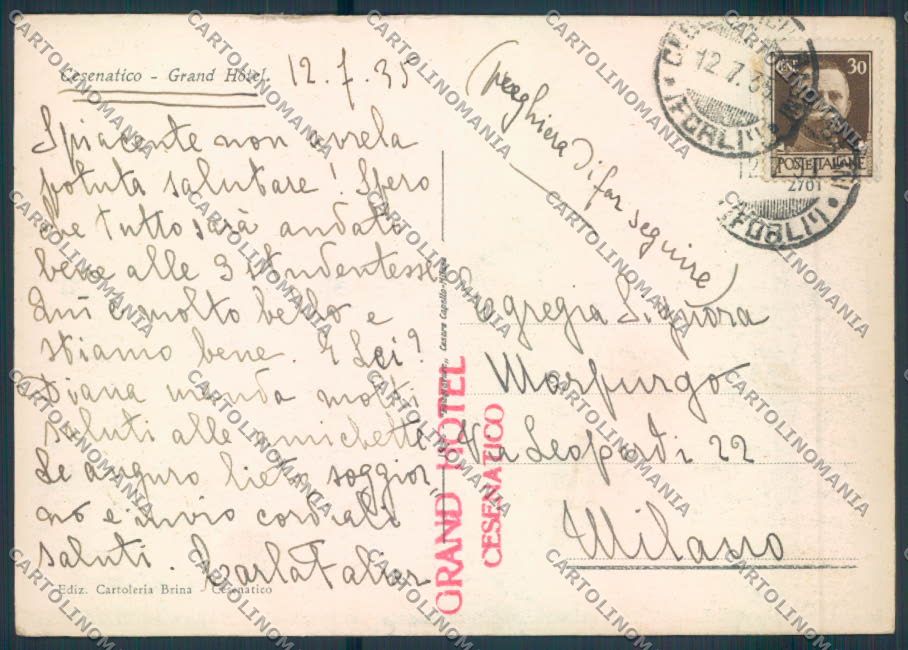 Cesenatico - Grand Hôtel.
12.7.35
Spiacente non averla
potuta salutare! Spero
che tutto sarà andato
bene alle 3 studentesse.
Qui è molto bello e
stiamo bene. E Lei?
Diana manda molti
saluti alle amichette
Le auguro lieto soggior
no e invio cordiali
saluti. Carla
Ediz. Cartoleria Brina - Cesenatico
Cesare Capello - Milano
GRAND HOTEL
CESENATICO
(preghiera di far seguire)
Egregia Signora
Morpurgo
Via Leopardi 22
Milano
12.7.35
(FORLI')
CENT. 30
POSTE ITALIANE
12
2701
(FORLI')
CARTOLINOMANIA